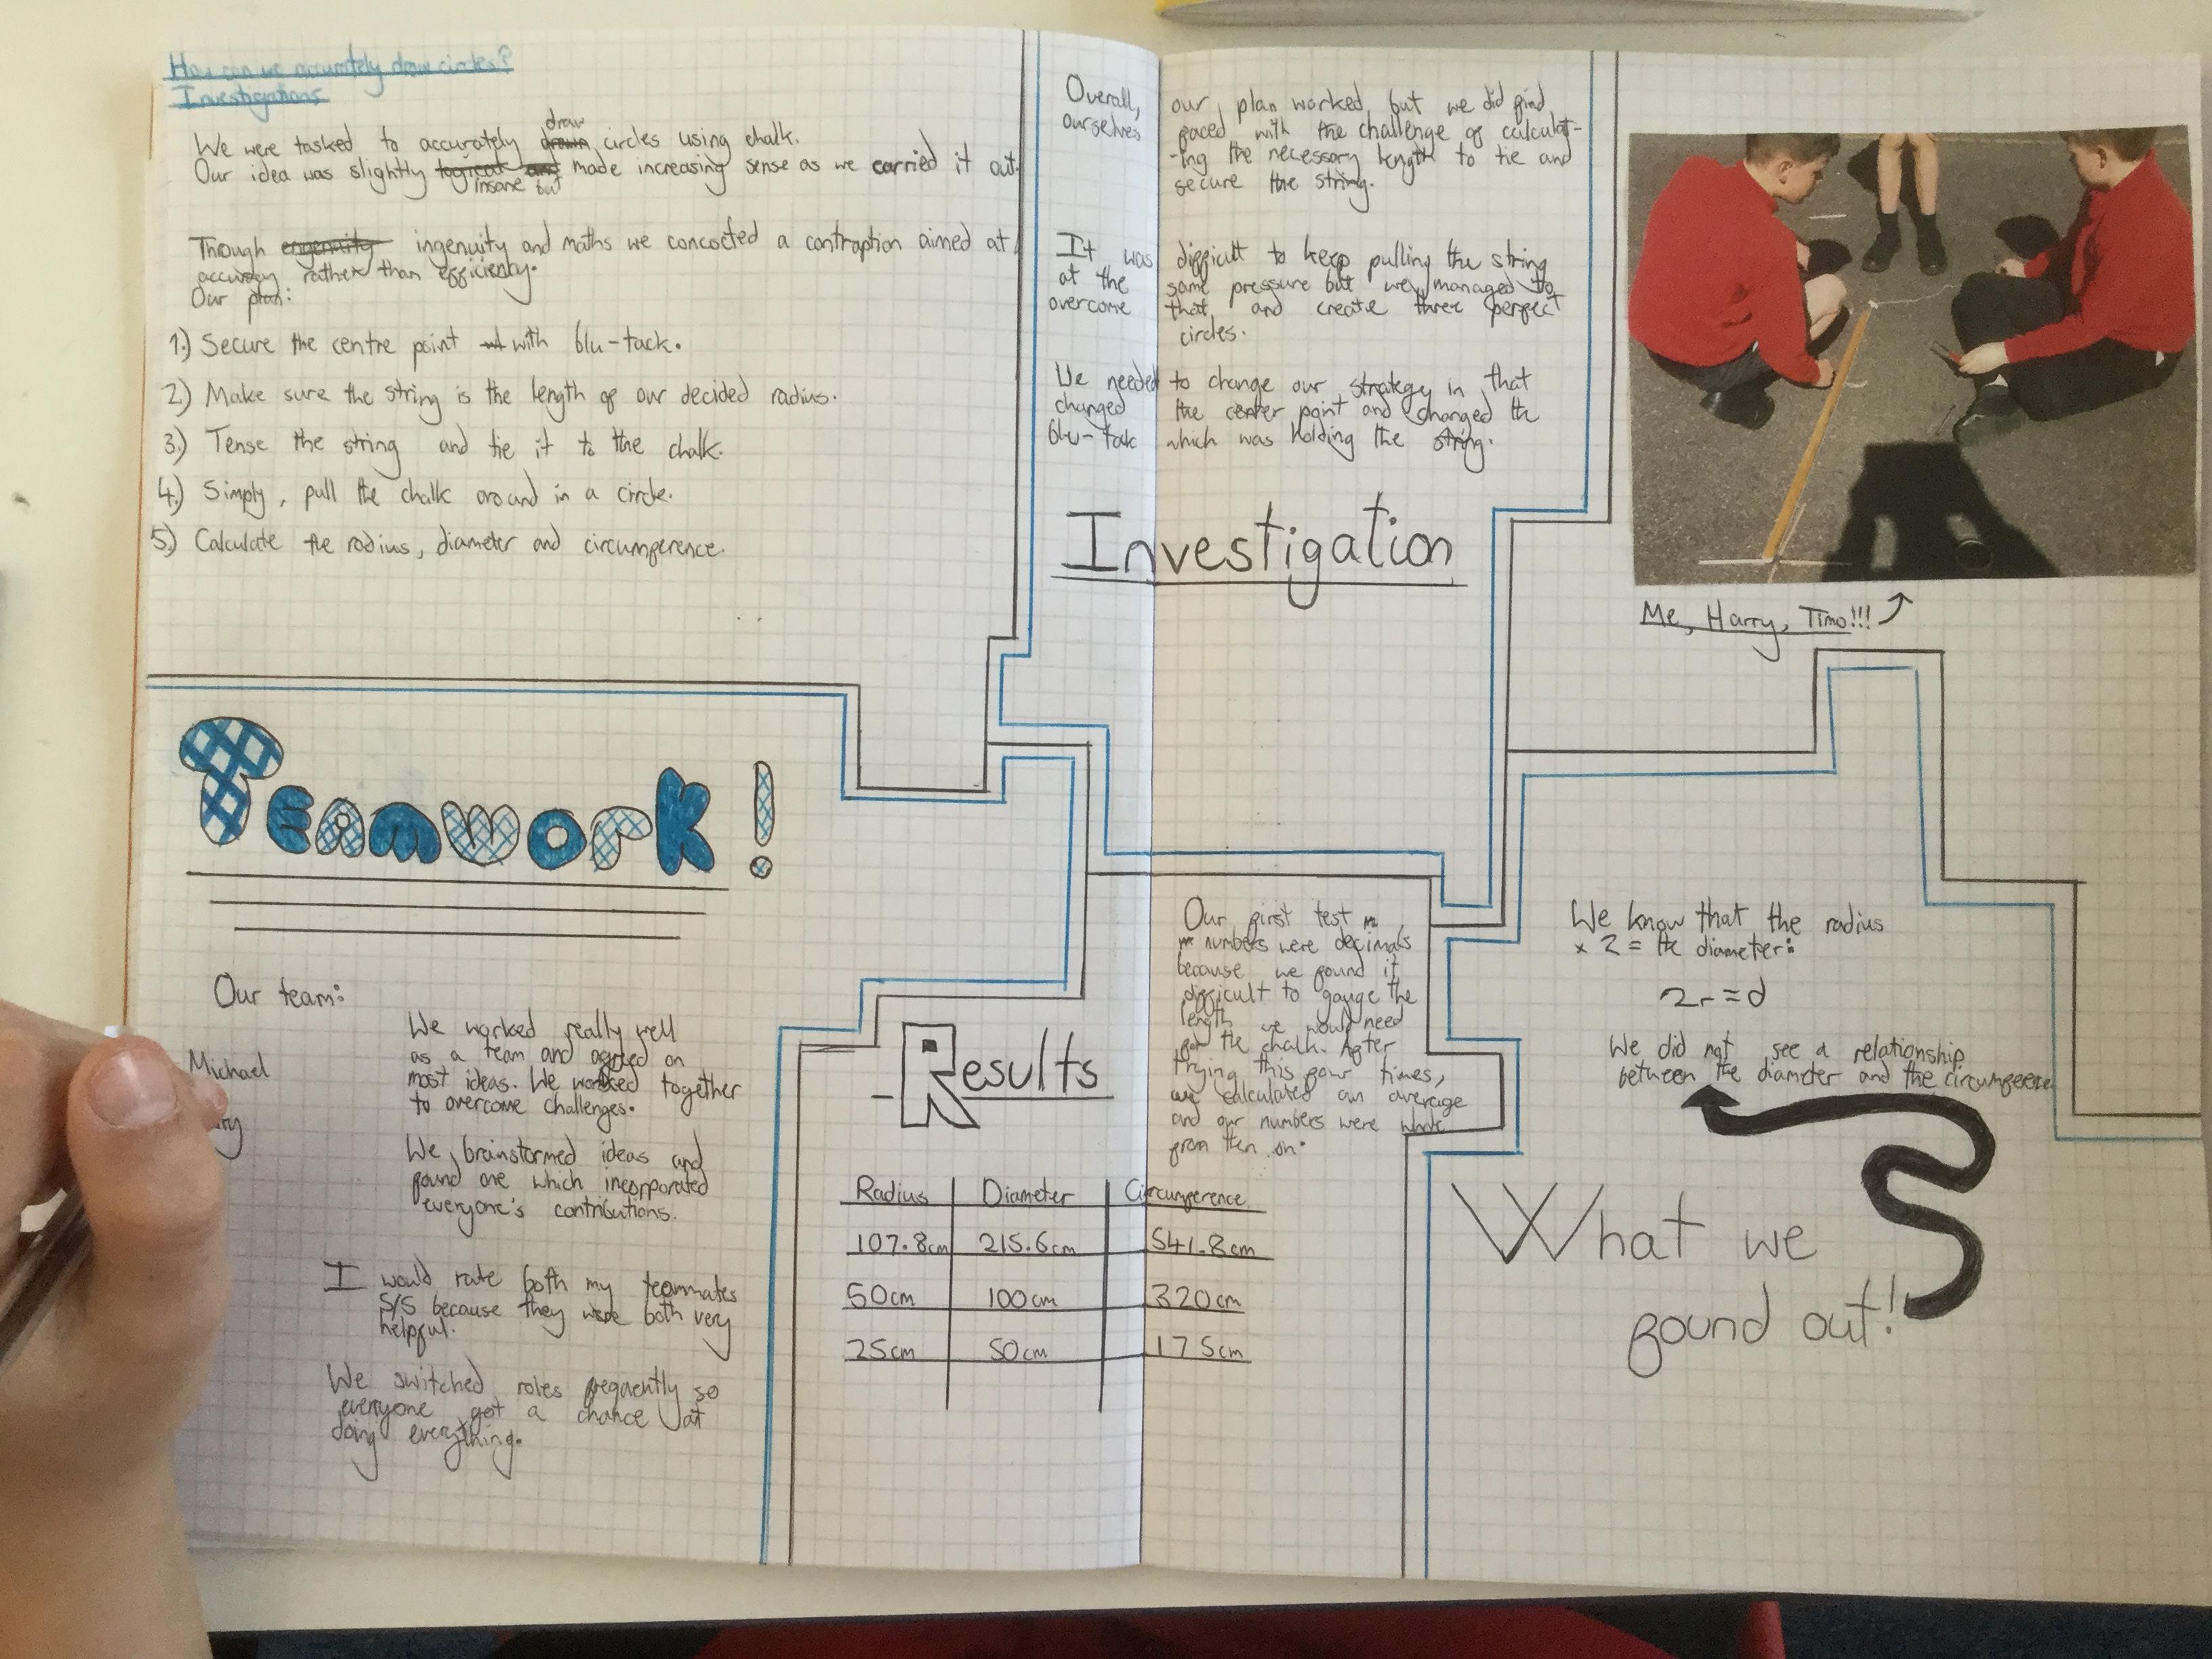 How can we accurately draw circles?
Investigations
draw
We were tasked to accurately drawn circles using chalk.
Our idea was slightly logical and made increasing sense as we carried it out.
insane but
Through engenuity ingenuity and maths we concocted a contraption aimed at
accuracy rather than efficiency.
Our plan:
1.) Secure the centre point with blu-tack.
2.) Make sure the string is the length of our decided radius.
3.) Tense the string and tie it to the chalk.
4.) Simply, pull the chalk around in a circle.
5.) Calculate the radius, diameter and circumference.
Teamwork!
Our team:
Michael
We worked really well
as a team and agreed on
most ideas. We worked together
to overcome challenges.
We brainstormed ideas and
found one which incorporated
everyone's contributions.
I would rate both my teammates
5/5 because they were both very
helpful.
We switched roles freqently so
everyone got a chance at
doing everything.
Overall, our plan worked, but we did find
ourselves faced with the challenge of calculat-
-ing the necessary length to tie and
secure the string.
It was difficult to keep pulling the string
at the same pressure but we managed to
overcome that, and create three perfect
circles.
We needed to change our strategy in that
changed the center point and changed the
blu-tak which was holding the string.
Investigation
Me, Harry, Timo!!!
Results
Our first test
numbers were decimals
because we found it
difficult to gauge the
length we would need
for the chalk. After
trying this four times,
we calculated an average
and our numbers were whole
from then on.
Radius Diameter Circumference
107.8cm 215.6cm 541.8cm
50cm 100cm 320cm
25cm 50cm 175cm
We know that the radius
x 2 = the diameter:
2r = d
We did not see a relationship
between the diameter and the circumference
What we
found out!